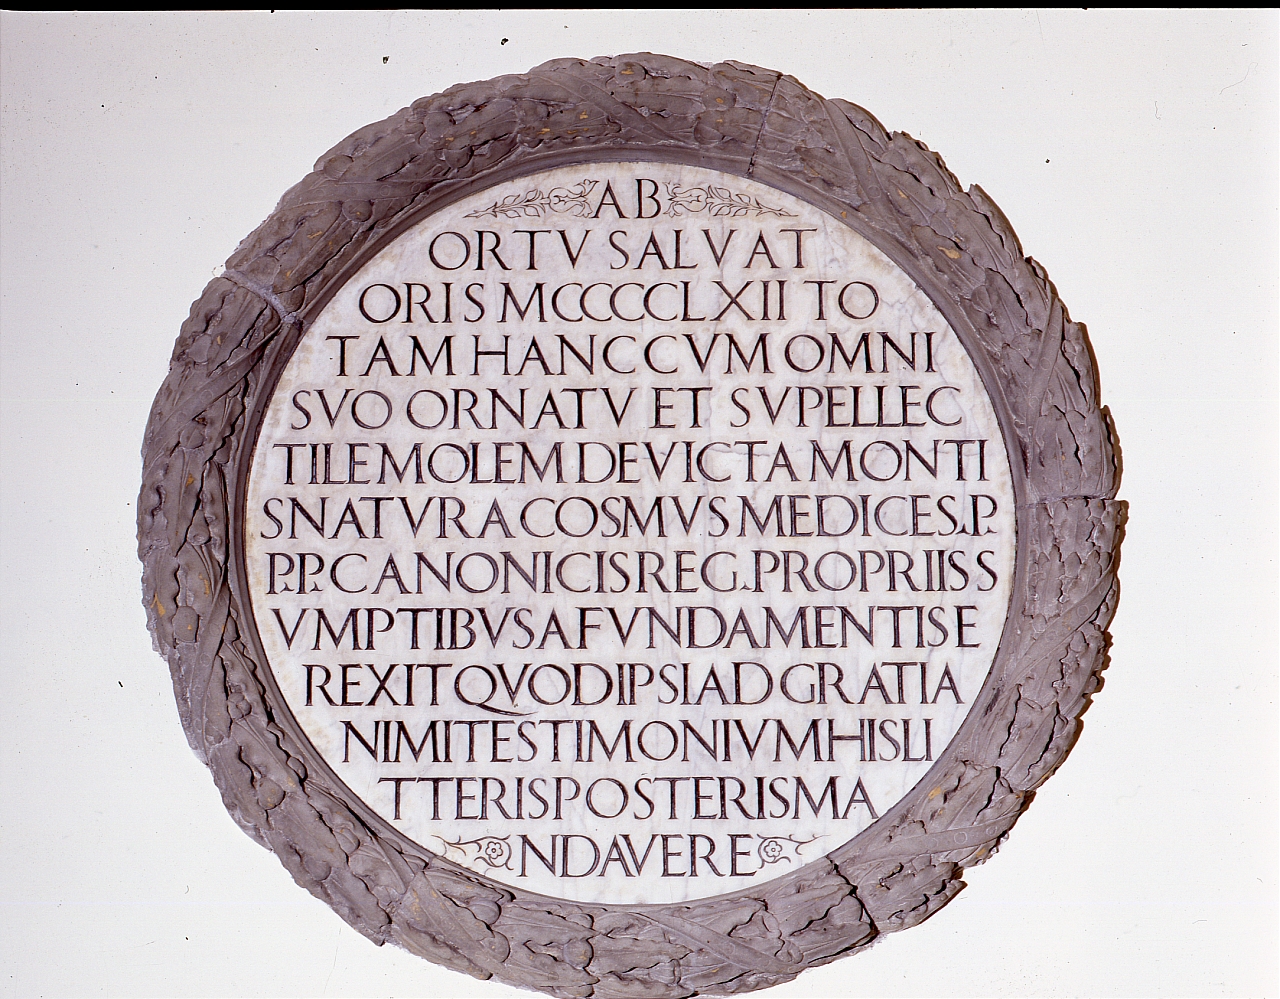 AB
ORTV SALVAT
ORIS MCCCCCLXII TO
TAM HANC CVM OMNI
SVO ORNATV ET SVPELLEC
TILE MOLEM DEVICTA MONTI
S NATVRA COSMVS MEDICES.P.
P.P.CANONICIS REG.PROPRIIS S
VMPTIBVS A FVNDAMENTIS E
REXIT QVOD IPSI AD GRATI A
NIMI TESTIMONIVM HIS LI
TTERIS POSTERIS MA
NDAVERE